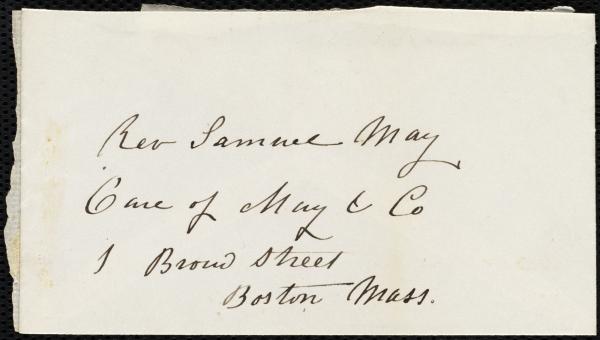 Rev Samuel May
Care of May & Co
1 Broad Street
Boston Mass.